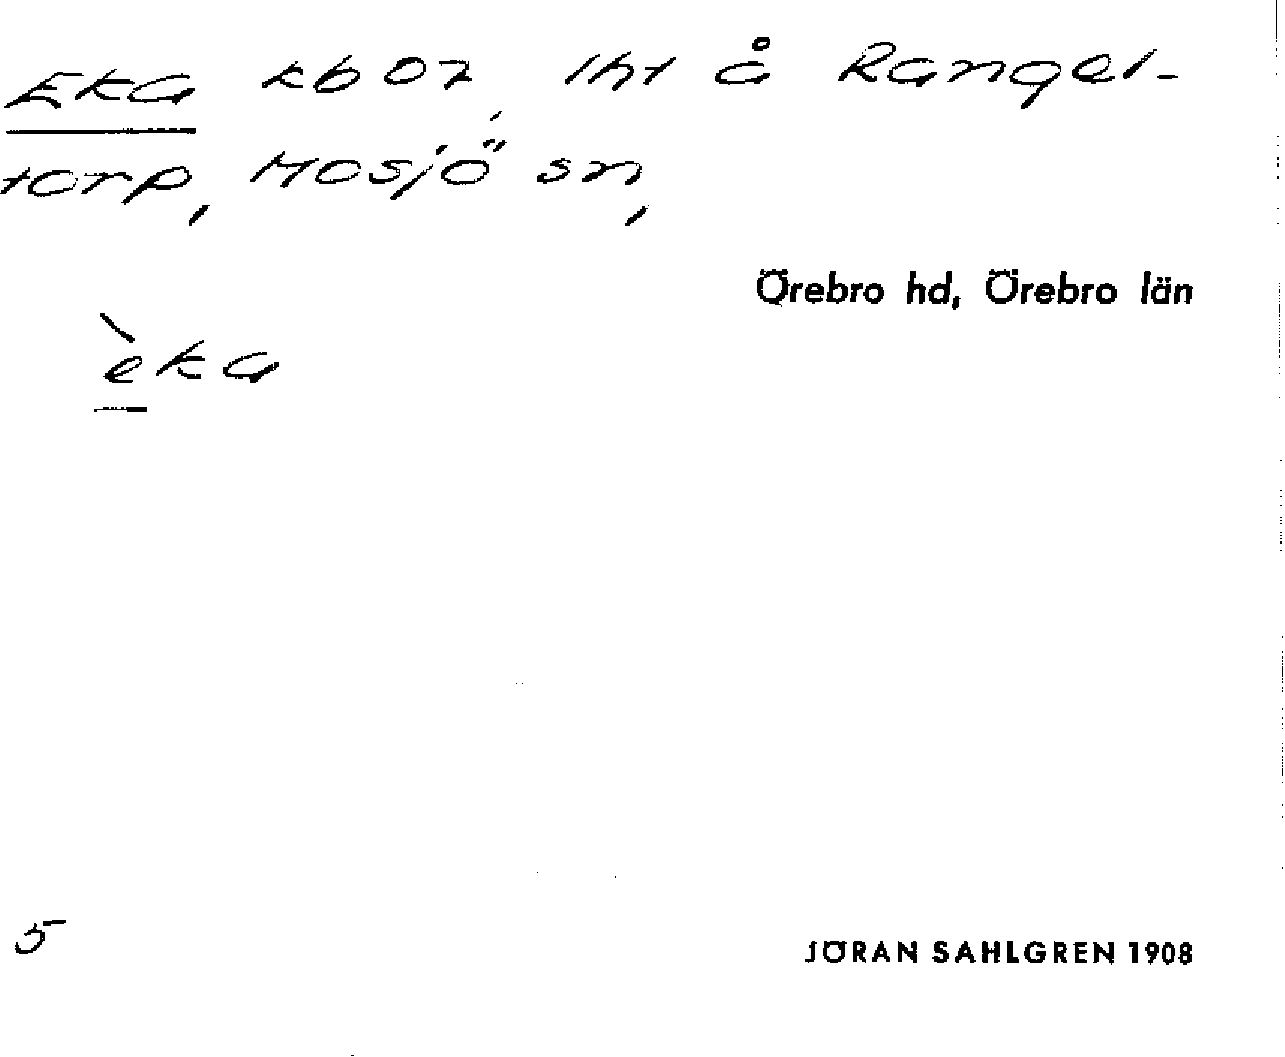 Eka kb 07, lht å Rangel-
torp, Mosjö sn,
Örebro hd, Örebro län
èka
5
JÖRAN SAHLGREN 1908